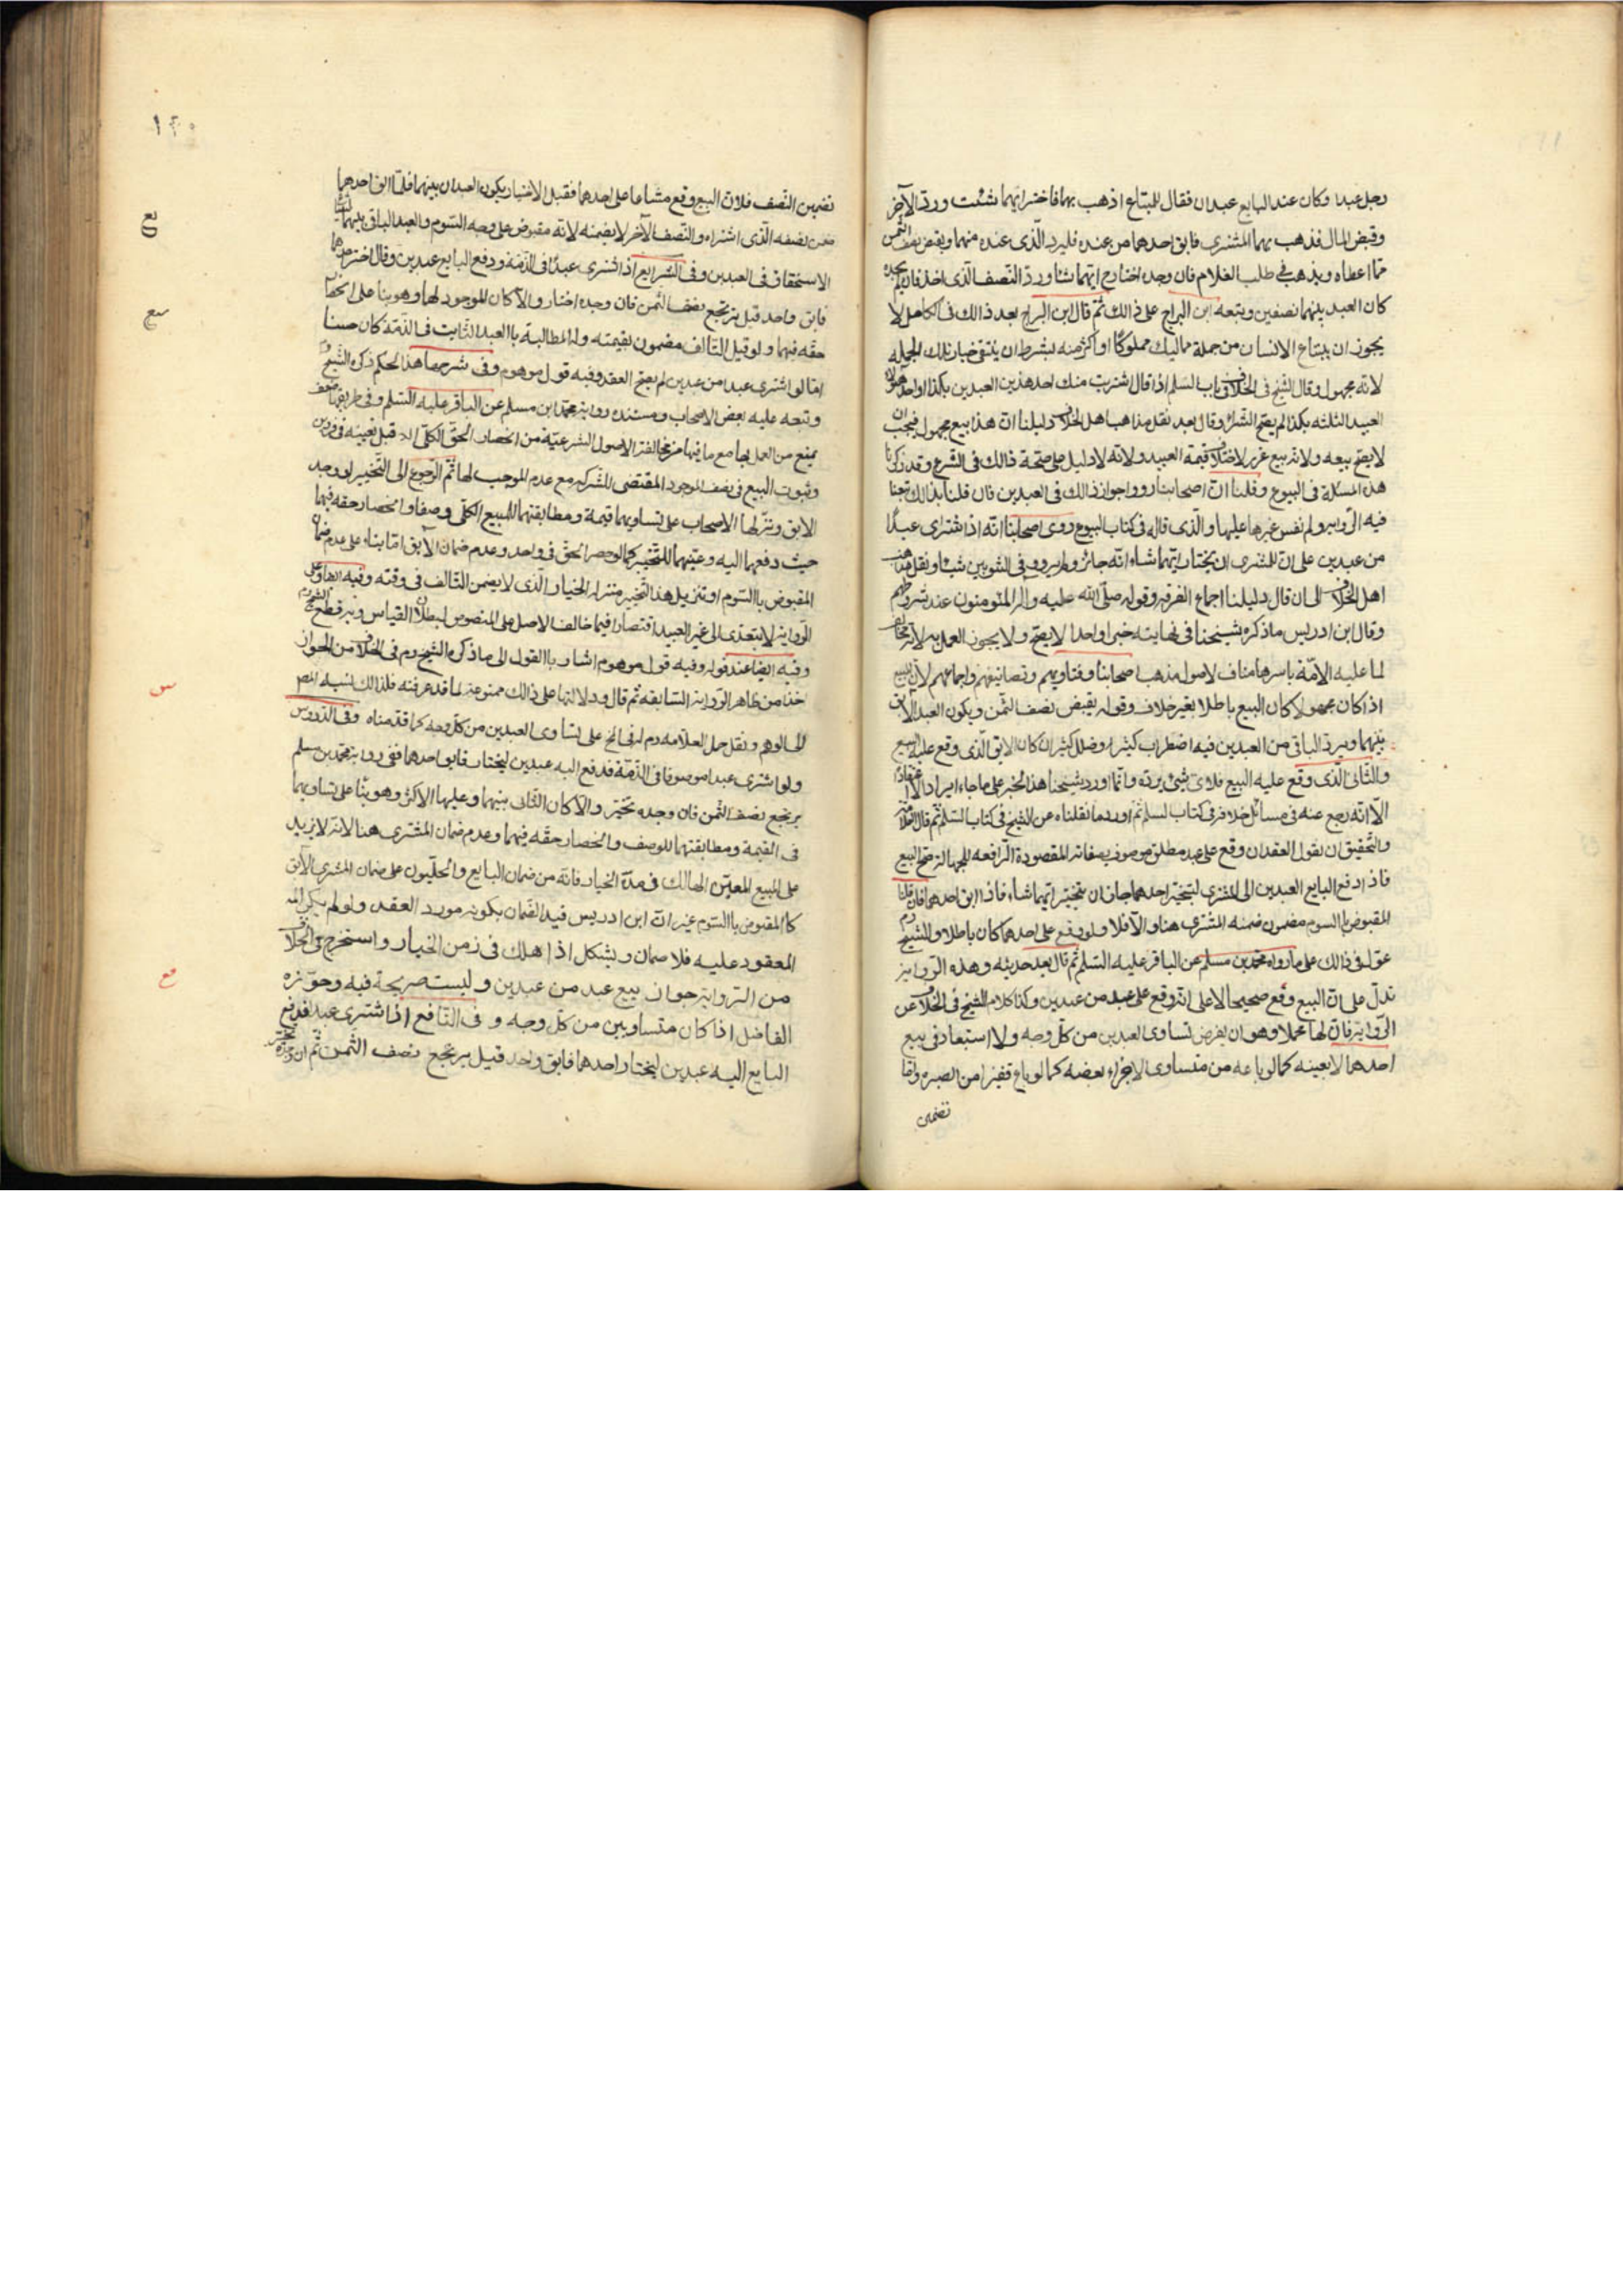 رجل عبدا وكان عند البايع عبدان فقال للمبتاع اذهب بهما فاختر ايّهما شئت وردّ الآخر
وقبض المال فذهب بهما المشترى فابق احدهما من عنده فليرد الّذى عنده منهما ويقبض نصف الثمن
ممّا اعطاه ويذهب فى طلب الغلام فان وجده اختار ايّهما شاء وردّ النّصف الّذى اخذ فان لم يجده
كان العبد بينهما نصفين وتبعه ابن البراج على ذالك ثمّ قال ابن البراج بعد ذالك فى الكامل لا
يجوز ان يبتاع الانسان من جملة مماليك مملوكًا او اكثر منه بشرط ان ينتقى خيار تلك الجمله
لانّه مجهول وقال الشّيخ فى الخلاف فى باب السّلم اذا قال اشتريت منك احد هذين العبدين بكذا او احد هؤلاء
العبيد الثلثه بكذا لم يصحّ الشّراء وقال بعد نقل مذاهب اهل الخلاف دليلنا انّ هذا بيع مجهول فيجب ان
لا يصحّ بيعه ولانّه بيع غرر لاختلاف قيمة العبيد ولانّه لا دليل على صحّة ذالك فى الشّرع وقد ذكرنا
هذه المسئلة فى البيوع وقلنا انّ اصحابنا رووا جواز ذالك فى العبدين فان قلنا بذالك تبعنا
فيه الرّواية ولم نقس غيرها عليها والّذى قاله فى كتاب البيوع روى اصحابنا انّه اذا اشترى عبدًا
من عبدين على انّ للمشترى ان يختار ايّهما شاء انّه جائز ولم يرووا فى الثوبين شيئا ونقل مذاهب
اهل الخلاف الى ان قال دليلنا اجماع الفرقة وقوله صلّى الله عليه واله المؤمنون عند شروطهم
وقال ابن ادريس ماذكره شيخنا فى نهايته خبر واحد لا يصحّ ولا يجوز العمل به لانّه مخالف
لما عليه الامّة باسرها مناف لاصول مذهب اصحابنا وفتاويهم وتصانيفهم واجماعهم لانّ المبيع
اذا كان مجهولا كان البيع باطلا بغير خلاف وقوله يقبض نصف الثّمن ويكون العبد الآبق
بينهما ويردّ الباقى من العبدين فيه اضطراب كثير وخلل كبير ان كان الابق الّذى وقع عليه البيع
والثّانى الّذى وقع عليه البيع فلاى شىء يردّه وانّما اورد شيخنا هذا الخبر على ماجاء ايرادا لا اعتقادا
الّا انّه رجع عنه فى مسائل خلافه فى كتاب السلم ثمّ اورد ما نقلناه عن الشيخ فى كتاب السّلم ثمّ قال العلّامة
والتّحقيق ان نقول العقد ان وقع على عبد مطلق موصوف بصفاته المقصودة الرّافعه للجهالة صحّ البيع
فاذا دفع البايع العبدين الى المشترى ليتخيّر احدهما جاز ان يتخيّر ايّهما شاء فاذا ابق احدهما فان قلنا
المقبوض بالسوم مضمون ضمنه المشترى هنا والّا فلا ولو وقع على احدهما كان باطلا والشّيخ ره
عوّل فى ذالك على مارواه محمّد بن مسلم عن الباقر عليه السّلم ثمّ قال بعد حديثه وهذه الرّواية
تدلّ على انّ البيع وقع صحيحا لا على انّه وقع على عبد من عبدين وكذا كلام الشّيخ فى الخلاف عن
الرّواية فان لها محملا وهو ان يفرض تساوى العبدين من كلّ وجه ولا استبعاد فى بيع
احدهما لا بعينه كما لو باعه من متساوى الاجزاء بعضه كما لو باع قفيزا من الصبره وامّا
تضمين
١٢٠
تضمين النّصف فلانّ البيع وقع مشاعا على احدهما فقبل الاختيار يكون العبدان بينهما فلمّا ابق احدهما
ضمن نصفه الّذى اشتراه والنّصف الآخر لا يضمنه لانّه مقبوض على وجه السّوم والعبد الباقى بينهما
الاستحقاق فى العبدين وفى الشرايع اذا اشترى عبدًا فى الذّمّة ودفع البايع عبدين وقال اختر احدهما
فابق واحد قيل يرتجع نصف الثّمن فان وجده اختار والّا كان الموجود لهما وهو بناء على انحصار
حقّه فيهما ولو قيل التّالف مضمون بقيمته وله المطالبة بالعبد الثّابت فى الذّمّة كان حسنا
امّا لو اشترى عبدا من عبدين لم يصحّ العقد وفيه قول موهوم وفى شرحها هذا الحكم ذكره الشّيخ
وتبعه عليه بعض الاصحاب ومستنده رواية محمّد ابن مسلم عن الباقر عليه السّلم وفى طريقها ضعف
يمنع من العمل بها مع مافيها من مخالفة الاصول الشرعيّة من انحصار الحقّ الكلّى قبل تعيينه فى فردين
وثبوت البيع فى نصف الموجود المقتضى للشّركة مع عدم الموجب لها ثمّ الرّجوع الى التّخيير لو وجد
الابق ونزّلها الاصحاب على تساويهما قيمة ومطابقتهما للمبيع الكلّى وصفا وانحصار حقّه فيهما
حيث دفعهما اليه وعيّنهما للتّخيير كما لو حصر الحقّ فى واحد وعدم ضمان الآبق امّا بناء على عدم ضمان
المقبوض بالسّوم او تنزيل هذا التّخيير منزلة الخيار الّذى لا يضمن التّالف فى وقته وفيه
الرّواية لا يتعدّى الى غير العبيد اقتصارا فيما خالف الاصل على المنصوص لبطلان القياس وبه قطع
وفيه ايضا عند قوله وفيه قول موهوم اشار بالقول الى ماذكره الشّيخ ره فى الخلاف من الجواز
اخذا من ظاهر الرّواية السّابقه ثمّ قال ودلالتها على ذالك ممنوعة لما قد عرفته فلذالك نسبه المصـ
الى الوهم ونقل حمل العلّامه ره له فى لف على تساوى العبدين من كلّ وجه كما قدّمناه وفى الدّروس
ولو اشترى عبدا موصوفا فى الذّمّة فدفع اليه عبدين ليختار فابق احدهما ففى رواية محمّد بن مسلم
يرتجع نصف الثّمن فان وجده تخيّر والّا كان الثّانى بينهما وعليها الاكثر وهو بناء على تساويهما
فى القيمة ومطابقتهما للوصف وانحصار حقّه فيهما وعدم ضمان المشترى هنا لانّه لا يزيد
على المبيع المعيّن الهالك فى مدّة الخيار فانّه من ضمان البايع والحلّيون على ضمان المشترى الآبق
كالمقبوض بالسّوم غير انّ ابن ادريس قيّد الضّمان بكونه مورد العقد ولو لم يكن
المعقود عليه فلا ضمان ويشكل اذا هلك فى زمن الخيار واستخرج فى الخلاف
من الرّواية جواز بيع عبد من عبدين وليست صريحة فيه وجوّزه
الفاضل اذا كان متساويين من كلّ وجه وفى النّافع اذا اشترى عبدا فدفع
البايع اليه عبدين ليختار احدهما فابق واحد قيل يرتجع نصف الثّمن ثمّ ان وجده تخيّر